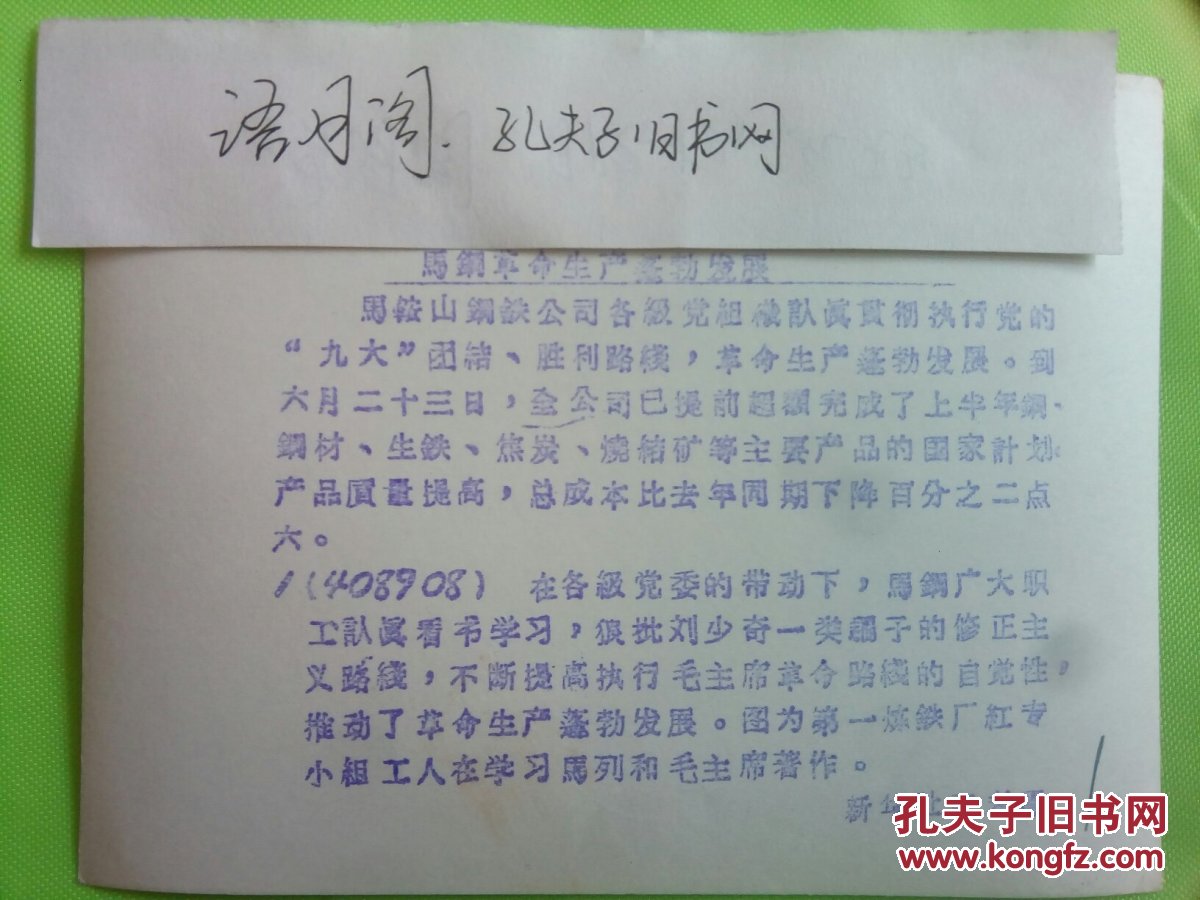 语月阁. 孔夫子旧书网
馬鋼革命生产蓬勃发展
馬鞍山鋼鉄公司各級党組織认眞貫彻执行党的
“九大”团結、胜利路綫，革命生产蓬勃发展。到
六月二十三日，全公司已提前超額完成了上半年鋼、
鋼材、生鉄、焦炭、燒結矿等主要产品的国家計划。
产品质量提高，总成本比去年同期下降百分之二点
六。
1(408908) 在各級党委的带动下，馬鋼广大职
工认眞看书学习，狠批刘少奇一类騙子的修正主
义路綫，不断提高执行毛主席革命路綫的自觉性，
推动了革命生产蓬勃发展。图为第一炼鉄厂紅专
小組工人在学习馬列和毛主席著作。
新华社
孔夫子旧书网
www.kongfz.com